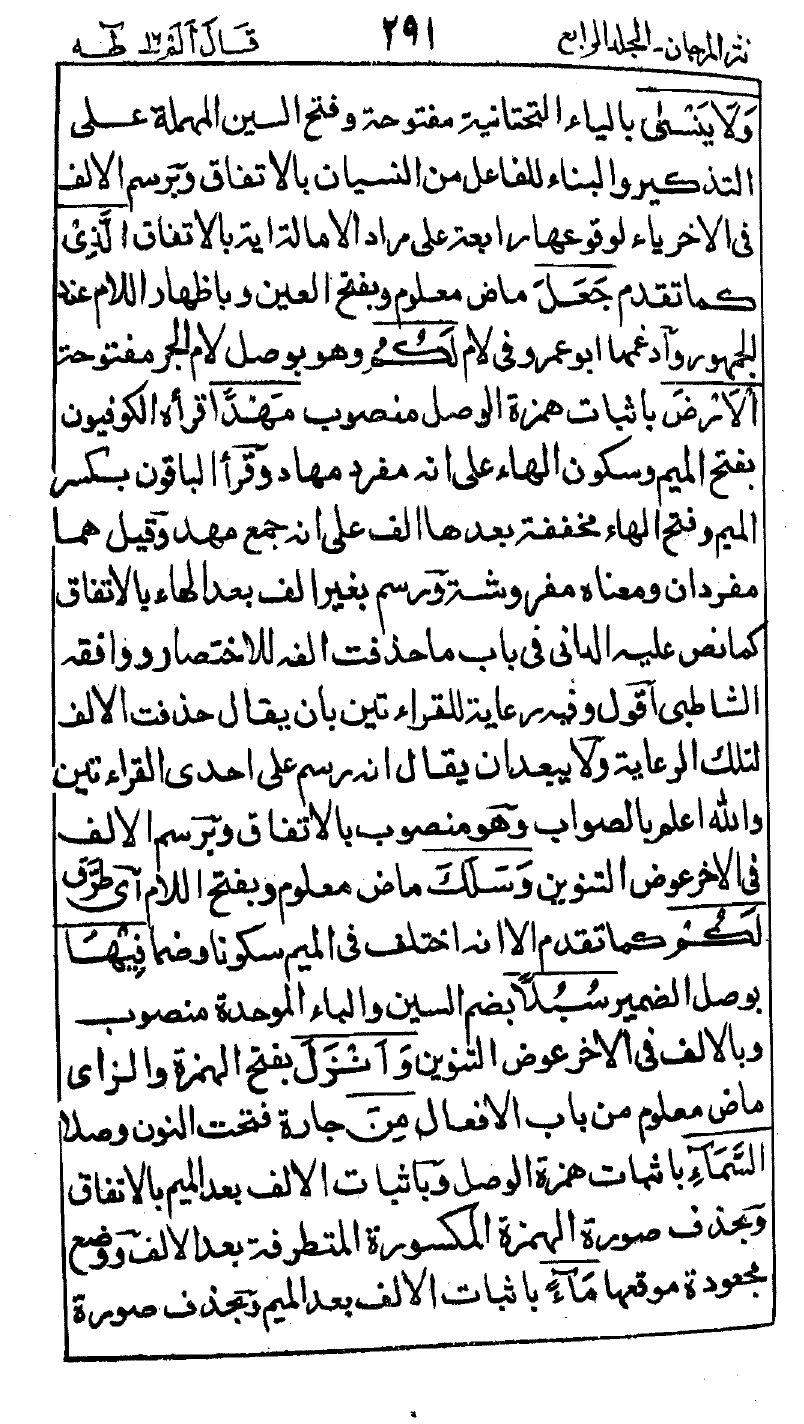 نثر المرجان - المجلد الرابع ٢٩١ قال الم ١٦ طه
وَلَا يَنْسٰى بالياء التحتانية مفتوحة وفتح السين المهملة على
التذكير والبناء للفاعل من النسيان بالاتفاق وترسم الالف
فى الاخر ياء لوقوعها رابعة على مراد الامالة اية بالاتفاق الَّذِىْ
كما تقدم جَعَلَ ماض معلوم وبفتح العين وباظهار اللام عند
الجمهور وآدغمها ابو عمرو فى لام لَكُمُ وهو بوصل لام الجر مفتوحة
الْاَرْضَ باثبات همزة الوصل منصوب مَهْدًا قرأه الكوفيون
بفتح الميم وسكون الهاء على انه مفرد مهاد وقرأ الباقون بكسر
الميم وفتح الهاء مخففة بعدها الف على انه جمع مهد وقيل هما
مفردان ومعناه مفروشة ورسم بغير الف بعد الهاء بالاتفاق
كما نص عليه الدانى فى باب ما حذفت الفه للاختصار ووافقه
الشاطبى آقول وفيه رعاية للقراءتين بان يقال حذفت الالف
لتلك الرعاية ولا يبعد ان يقال انه رسم على احدى القراءتين
والله اعلم بالصواب وهو منصوب بالاتفاق وترسم الالف
فى الاخر عوض التنوين وَسَلَكَ ماض معلوم وبفتح اللام آى طرَّق
لَكُمْ كما تقدم الا انه اختلف فى الميم سكونا وضما فِيْهَا
بوصل الضمير سُبُلًا بضم السين والباء الموحدة منصوب
وبالالف فى الاخر عوض التنوين وَاَنْزَلَ بفتح الهمزة والزاى
ماض معلوم من باب الافعال مِنَ جارة فتحت النون وصلا
السَّمَآءِ باثبات همزة الوصل وباثبات الالف بعد الميم بالاتفاق
وبحذف صورة الهمزة المكسورة المتطرفة بعد الالف ووضع
مجعودة موقعها مَآءً باثبات الالف بعد الميم وبحذف صورة